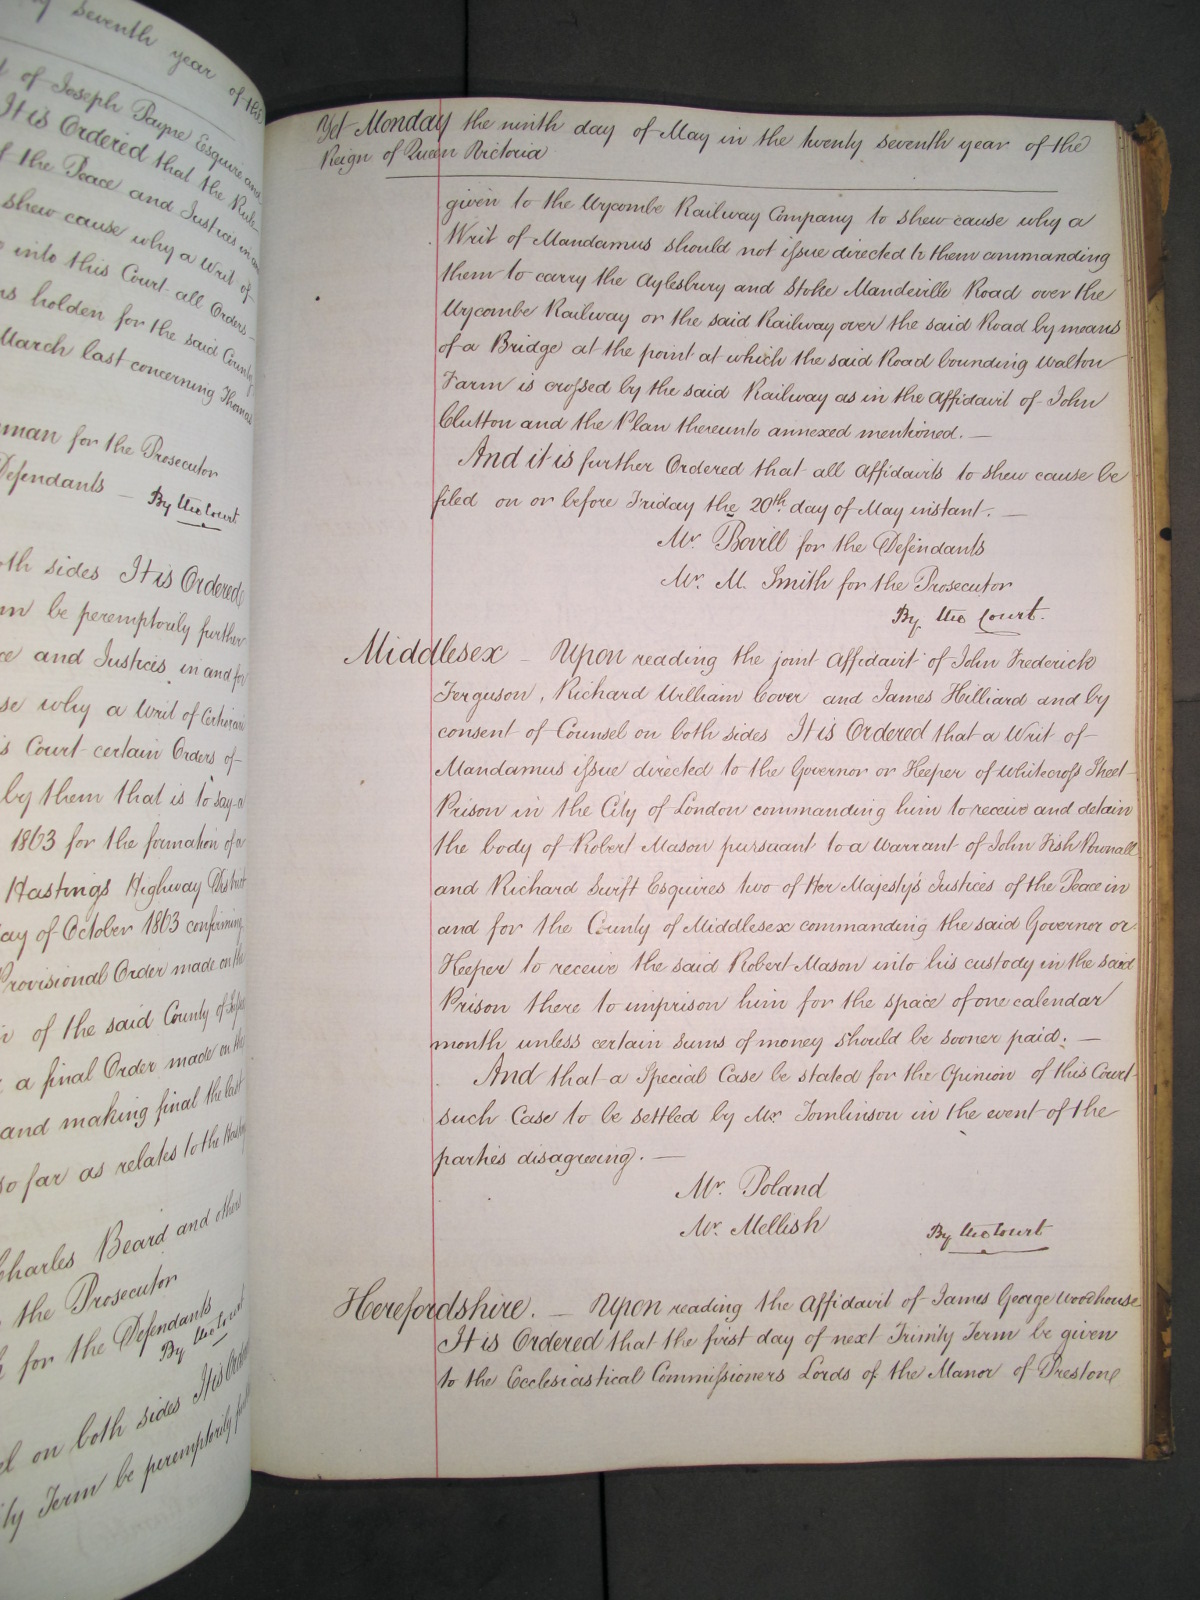 seventh year of this
of Joseph Payne Esquire and
It is Ordered that the Rule
of the Peace and Justices in an
shew cause why a Writ of
into this Court all Orders
holden for the said County
March last concerning Thomas
man for the Prosecutor
Defendants —
By the Court
th sides It is Ordered
be peremptorily further
and Justices in and for
why a Writ of Certiorari
Court certain Orders of
by them that is to say a
1863 for the formation of a
Hastings Highway District
day of October 1863 confirming
Provisional Order made on the
of the said County of
a final Order made on the
and making final the last
so far as relates to the
Charles Beard and others
the Prosecutor
for the Defendants
By the Court
on both sides It is
Term be peremptorily
Yet Monday the ninth day of May in the twenty seventh year of the
Reign of Queen Victoria
given to the Wycombe Railway Company to shew cause why a
Writ of Mandamus should not issue directed to them commanding
them to carry the Aylesbury and Stoke Mandeville Road over the
Wycombe Railway or the said Railway over the said Road by means
of a Bridge at the point at which the said Road bounding Walton
Farm is crossed by the said Railway as in the Affidavit of John
Clutton and the Plan thereunto annexed mentioned. —
And it is further Ordered that all Affidavits to shew cause be
filed on or before Friday the 20th. day of May instant. —
Mr. Bovill for the Defendants
Mr. M. Smith for the Prosecutor
By the Court.
Middlesex — Upon reading the joint Affidavit of John Frederick
Ferguson, Richard William Cover and James Hilliard and by
consent of Counsel on both sides It is Ordered that a Writ of
Mandamus issue directed to the Governor or Keeper of Whitecross Street
Prison in the City of London commanding him to receive and detain
the body of Robert Mason pursuant to a Warrant of John Fish Pownall
and Richard Swift Esquires two of Her Majesty's Justices of the Peace in
and for the County of Middlesex commanding the said Governor or
Keeper to receive the said Robert Mason into his custody in the said
Prison there to imprison him for the space of one calendar
month unless certain sums of money should be sooner paid. —
And that a Special Case be stated for the Opinion of this Court
such Case to be settled by Mr. Tomlinson in the event of the
parties disagreeing. —
Mr. Poland
Mr. Mellish
By the Court
Herefordshire. — Upon reading the Affidavit of James George Woodhouse
It is Ordered that the first day of next Trinity Term be given
to the Ecclesiastical Commissioners Lords of the Manor of Prestone